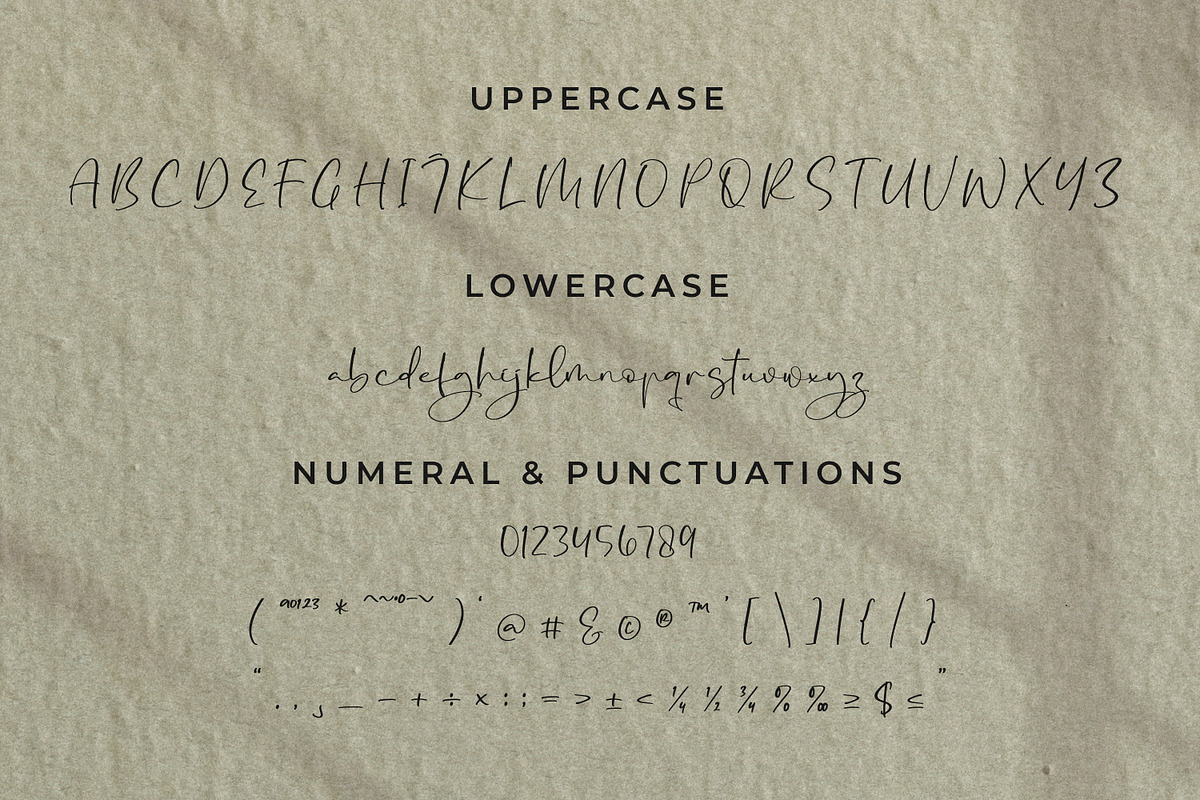 UPPERCASE
ABCDEFGHIJKLMNOPQRSTUVWXYZ
LOWERCASE
abcdefghijklmnopqrstuvwxyz
NUMERAL & PUNCTUATIONS
0123456789
( ao123 * ^~~•o-~ ) ‘ @ # & © ® ™ ’ [ \ ] | { / }
“ . , ¸ _ – + ÷ × : ; = > ± < ¼ ½ ¾ % ‰ ≥ $ ≤ ”